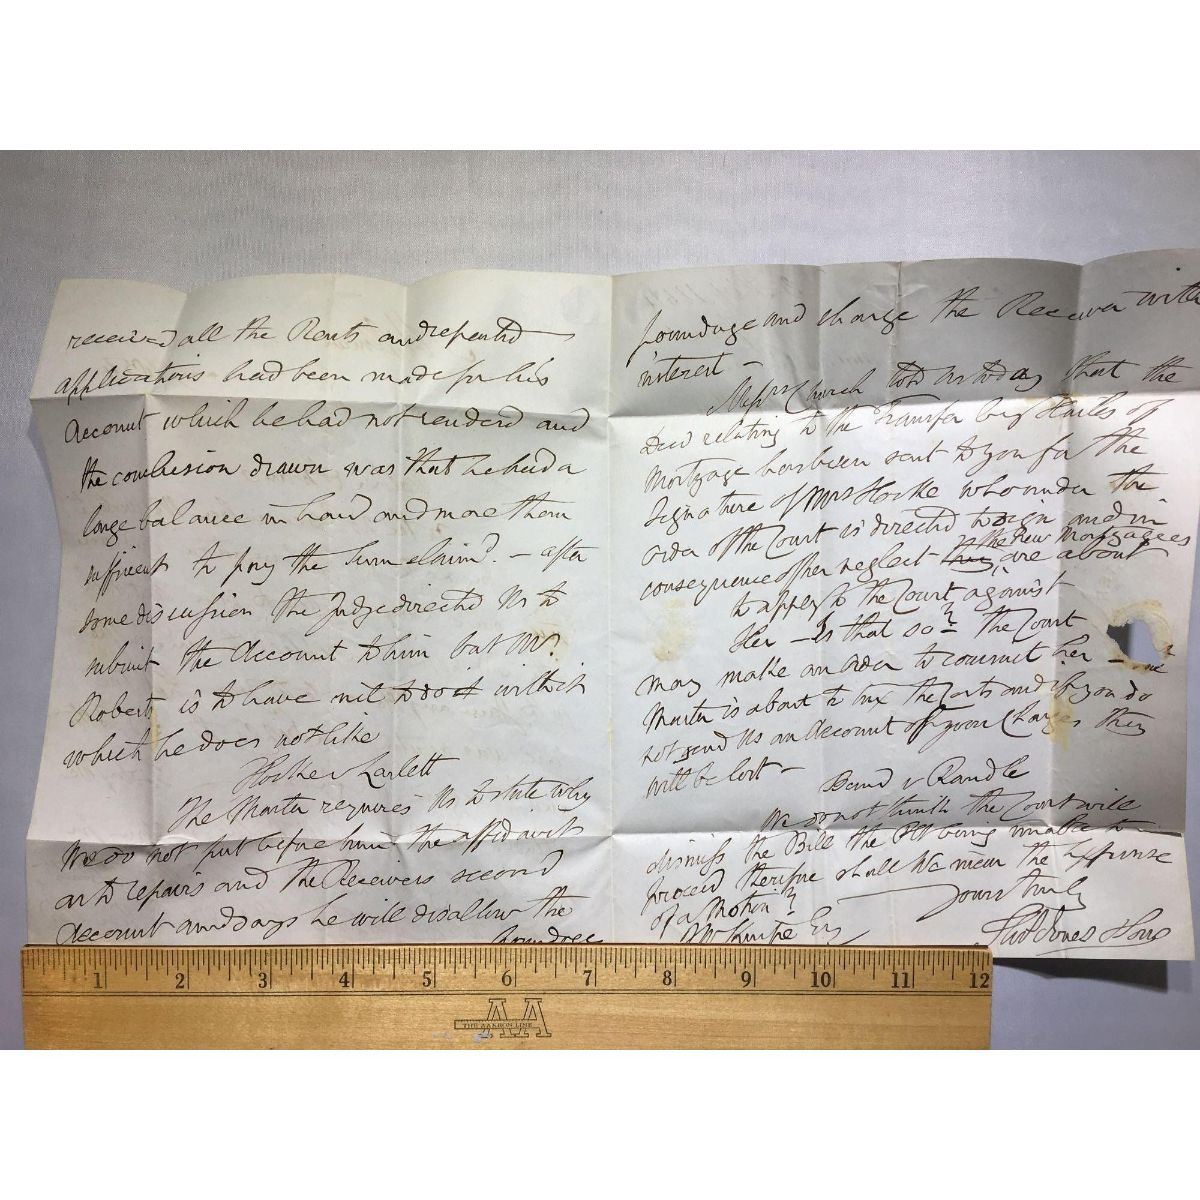 received all the Rents and repeated
applications had been made for his
Account which he had not renderd and
the conclusion drawn was that he had a
large balance in hand and more than
sufficient to pay the Sum claim? - after
some discussion the Judge directed us to
submit the Account to him but Mr.
Roberts is to have nil to do with it
which he does not like
The Master requires us to state why
We do not put before him the affidavit
as to repairs and the Receivers second
Account and says he will disallow the
Poundage
poundage and charge the Receiver with
interest -
Messrs Church told us today that the
Deed relating to the Transfer by Stailes of
Mortgage has been sent to you for the
Signature of Mrs who under the
order of the Court is directed to sign and in
consequence of her neglect the new Mortgagees
are about
to apply to the Court against
Her - Is that so? The Court
may make an order to commit her -
Master is about to tax the Costs and if you do
not send us an Account of your Charges they
will be lost -
Band v Randle
We do not think the Court will
dismiss the Bill the being unable to
proceed therefore shall we incur the expense
of a Motion?
Yours truly
Esq
Jones & Sons
1 2 3 4 5 6 7 8 9 10 11 12
THE AAKRON LINE
AA